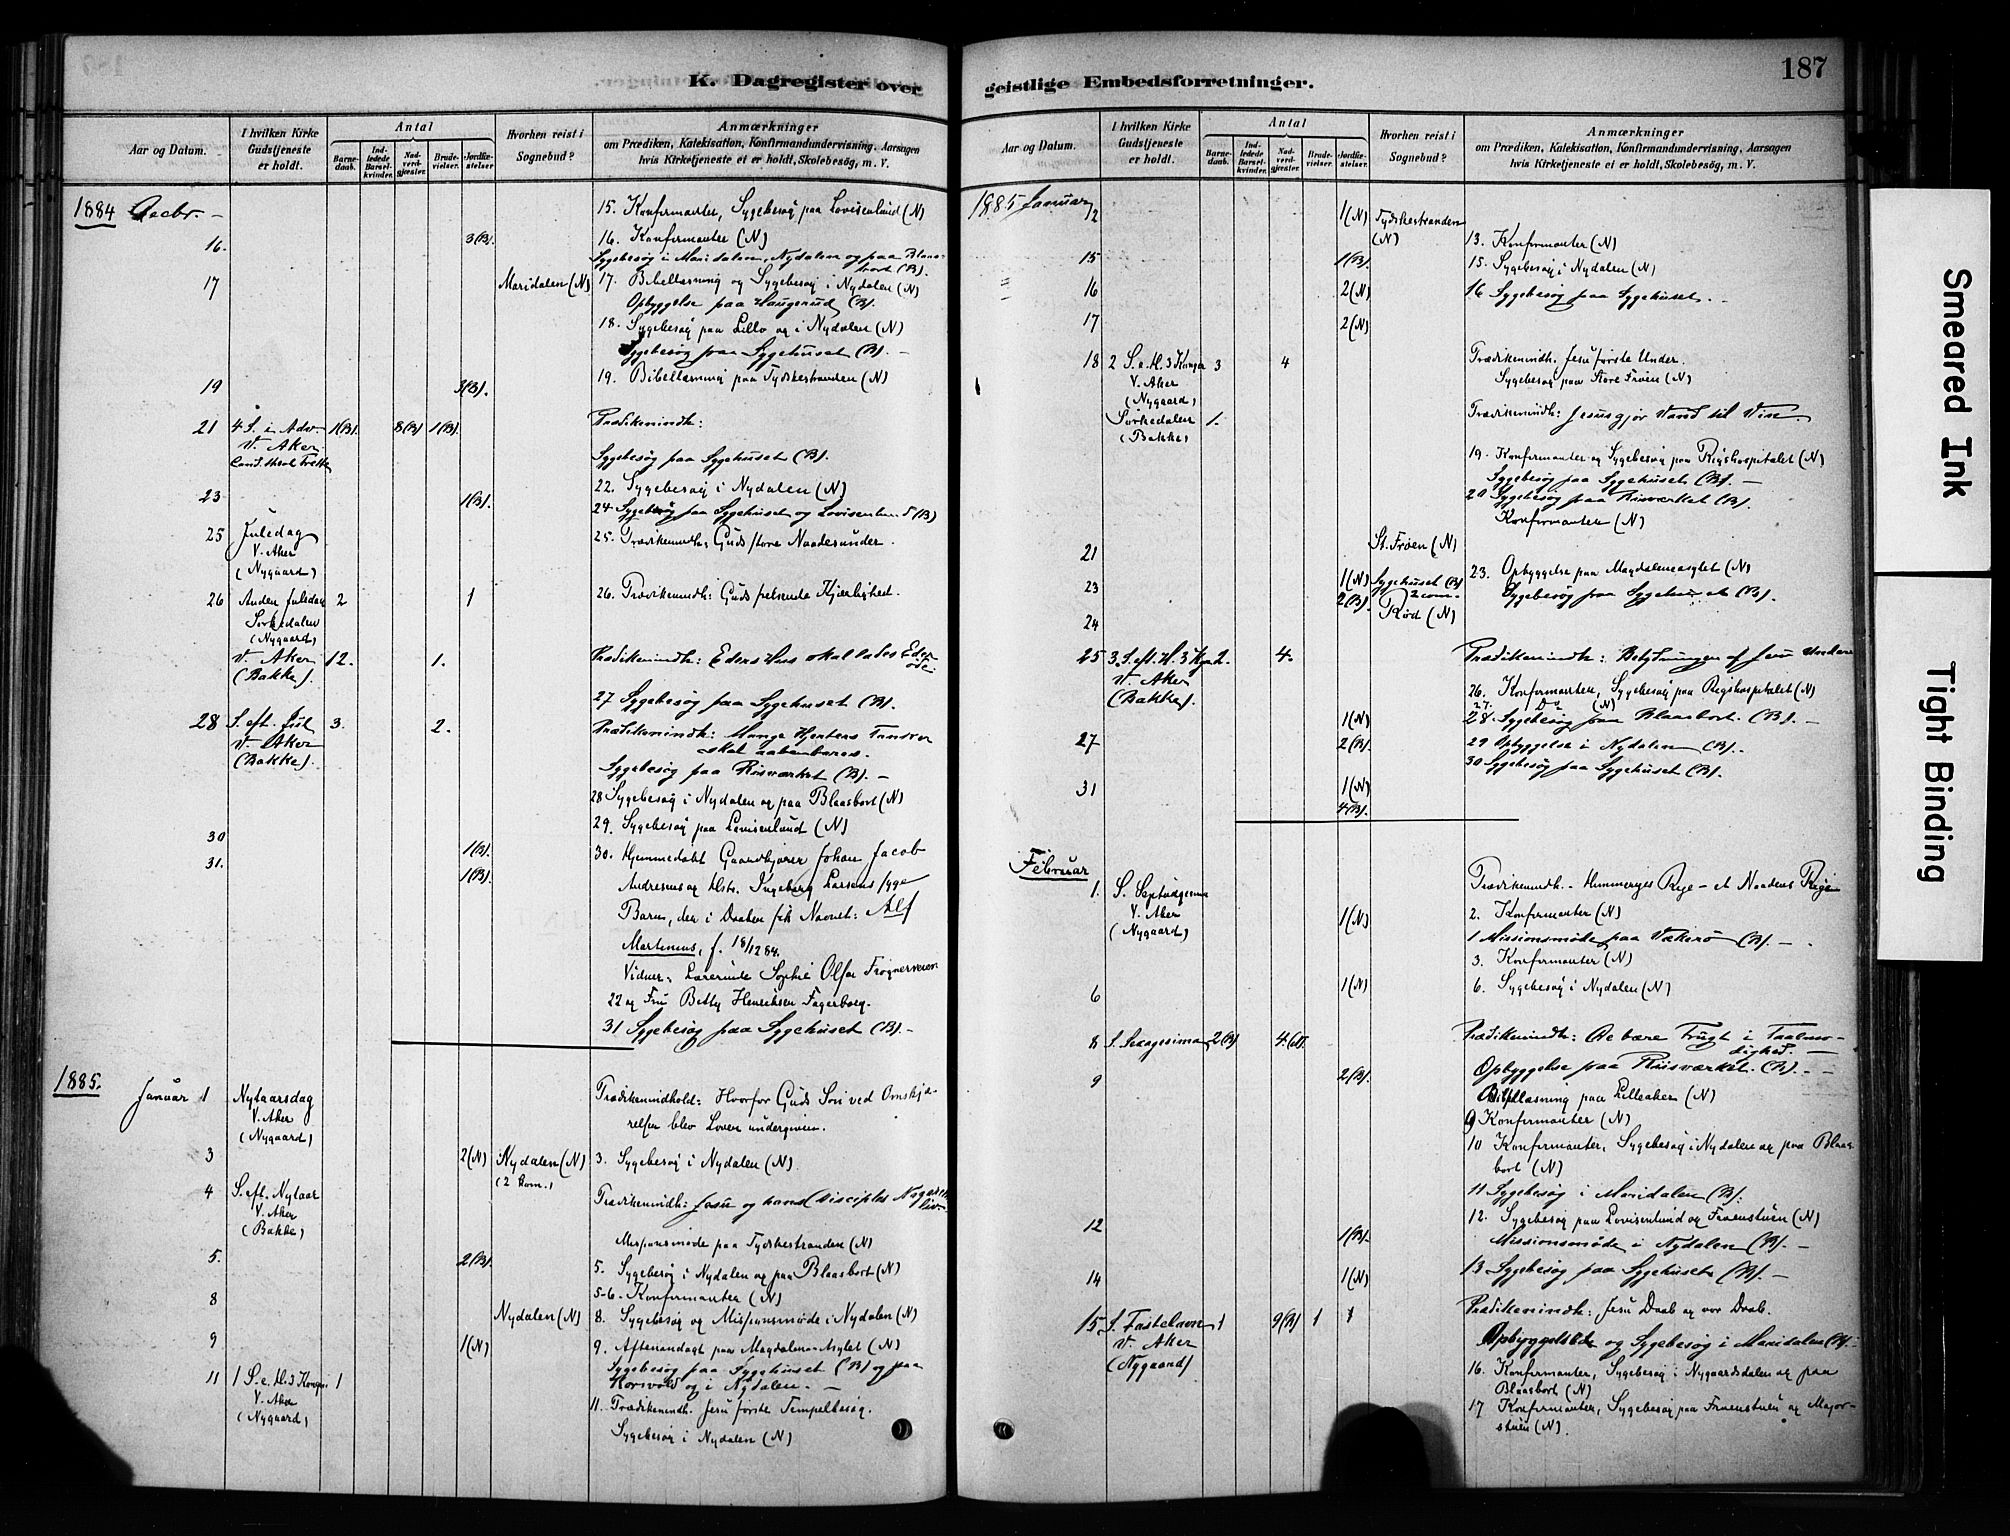 K. Dagregister over
Aar og Datum.
I hvilken Kirke Gudstjeneste er holdt.
Antal
Barnedaab.
Indledede Barselkvinder.
Nadverdgjester.
Brudevielser.
Jordfæstelser.
Hvorhen reist i Sognebud?
Anmærkninger
om Prædiken, Katekisation, Konfirmandundervisning, Aarsagen
hvis Kirketjeneste ei er holdt, Skolebesøg, m. V.
1884 Decbr. -
15. Konfirmanter, Sygebesøg paa Lovisenlund (N)
16. 3(B). 16. Konfirmanter (N)
Sygebesøg i Maridalen, Nydalen og paa Blaasbort (B).
17 Maridalen (N) 17. Bibellæsning og Sygebesøg i Nydalen (N)
Opbyggelse paa Haugerud (B).
18. Sygebesøg paa Lillo og i Nydalen (N)
Sygebesøg paa Sygehuset (B). -
19 3(B). 19. Bibellæsning paa Tydskestranden (N)
21 4 S. i Adv. 1(B). 8(B) 1(B). Prædikenindh:
V. Aker
Sygebesøg paa Sygehuset (B).
22. Sygebesøg i Nydalen (N)
23 1(B). 24 Sygebesøg paa Sygehuset og Lovisenlund (B)
25 Juledag 25. Prædikenindh: Guds store Naadesunder.
V. Aker
(Nygaard)
26 Anden Juledag 2 1 26. Prædikenindh: Guds frelsende Kjærlighed.
Sørkedalen
(Nygaard)
V. Aker 12. 1. Prædikenindh: Eders Hus skal lades Eder øde
(Bakke).
27 Sygebesøg paa Sygehuset (B).
28 S. eft. Jul 3. 2. Prædikenindh: Mange Hjerters Tanker
V. Aker skal aabenbares.
(Bakke).
Sygebesøg paa Riisværket (B). -
28 Sygebesøg i Nydalen og paa Blaasbort (N)
29. Sygebesøg paa Lovisenlund (N)
30 1(B). 30. Hjemmedøbt Gaardbruger Johan Jacob
31. 1(B). Andresens og Hstr. Ingeborg Larsens syge
Barn, der i Daaben fik Navnet: Alf
Martenius, f. 18/12 84.
Vidner: Lærerinde Sophie Olsen Frognerveien
22 og Fru Betty Henriksen Fagerborg.
31 Sygebesøg paa Sygehuset (B). -
1885.
Januar 1 Nytaarsdag Prædikenindhold: Hvorfor Guds Søn ved Omskjærelsen blev Loven undergiven.
V. Aker
(Nygaard)
3 2(N) Nydalen (N) 3. Sygebesøg i Nydalen (N)
(2 kom.)
4 S. eft. Nytaar Prædikenindh: Jesu og hans Disciples
V. Aker
(Bakke)
Missionsmøde paa Tydskestranden (N)
5. 2(B). 5. Sygebesøg i Nydalen og paa Blaasbort (N)
5-6. Konfirmanter (N)
8 Nydalen (N) 8. Sygebesøg og Missionsmøde i Nydalen (N)
9 1(N) 9. Aftenandagt paa Magdalena Asylet (N)
Sygebesøg paa Sygehuset (B) og paa
Korsvold og i Nydalen. -
11 1 S. e. H. 3 Konger 1 11. Prædikenindh. Jesu første Tempelbesøg.
V. Aker
(Nygaard)
Sygebesøg i Nydalen (N)
geistlige Embedsforretninger.
187
Aar og Datum.
I hvilken Kirke Gudstjeneste er holdt.
Antal
Barnedaab.
Indledede Barselkvinder.
Nadverdgjester.
Brudevielser.
Jordfæstelser.
Hvorhen reist i Sognebud?
Anmærkninger
om Prædiken, Katekisation, Konfirmandundervisning, Aarsagen
hvis Kirketjeneste ei er holdt, Skolebesøg, m. V.
1885 Januar 12 1(N) Tydskestranden (N)
13. Konfirmanter (N)
15 1(B). 15. Sygebesøg i Nydalen (N)
16 2(N) 16 Sygebesøg paa Sygehuset. -
17 2(N)
18 2 S. e. H. 3 Konger 3 4 Prædikenindh. Jesu første Under.
V. Aker Sygebesøg paa Store Frøen (N)
(Nygaard)
Sørkedalen 1. Prædikenindh: Jesus gjør Vand til Vin
(Bakke)
19. Konfirmanter og Sygebesøg paa Rigshospitalet (N)
Sygebesøg paa Sygehuset (B). -
20 Sygebesøg paa Riisværket (B).
Konfirmanter (N)
21 St. Frøen (N)
23 1(N) Sygehuset (B) 23. Opbyggelse paa Magdalenaasylet (N)
2(B). 2 com. Sygebesøg paa Sygehuset (B).
24 Rød (N)
25 3. S. eft. H. 3 Kgr 2. 4. Prædikenindh: Betydningen af Jesu Undere
V. Aker
(Bakke).
26. Konfirmanter, Sygebesøg paa Rigshospitalet (N)
27. Do (N)
1(N) 28. Sygebesøg paa Blaasbort. (B). -
27 2(B). 29 Opbyggelse i Nydalen (B).
30 Sygebesøg paa Sygehuset (B).
31 1(N)
4(B).
Februar
1. S. Septuagesima Prædikenindh. - Himmeriges Rige - et Naadens Rige
V. Aker
(Nygaard) 1(N)
2. Konfirmanter (N)
1 Missionsmøde paa Vækerø (B). -
3. Konfirmanter (N)
6 1(N) 6. Sygebesøg i Nydalen (N)
8 S. Sexagesima 2(B) Prædikenindh: De bære Frugt i Taalmodighed. -
9 2(B). Opbyggelse paa Riisværket. (B). -
Bibellæsning paa Lilleaker (N)
9 Konfirmanter (N)
10 Konfirmanter, Sygebesøg i Nydalen og paa Blaasbort (N)
11 Sygebesøg i Maridalen (B).
12. Sygebesøg paa Lovisenlund og Fruenstuen (N)
12 1(B). Missionsmøde i Nydalen (B). -
14 1(N) 13 Sygebesøg paa Sygehuset (B). -
15 S. Fastelavn 1 9(B) 1 1 Prædikenindh: Jesu Daab og vor Daab.
V. Aker
(Nygaard)
og Sygebesøg i Maridalen
16. Konfirmanter, Sygebesøg i Nygaardsdalen og paa
Blaasbort (N)
17 Konfirmanter, Sygebesøg paa Fruenstuen og Majorstuen (N).
Smeared Ink
Tight Binding